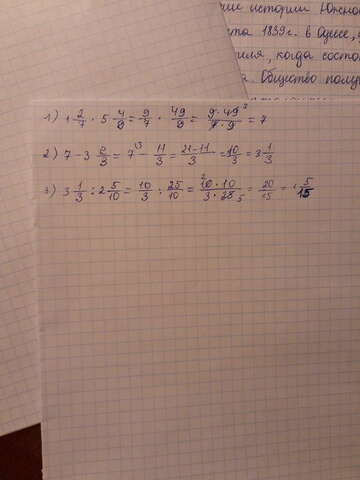 ции истории Южной
ста 1839 г. в Одессе,
когда состо
Общество полу
1) 1 2/7 · 5 4/9 = 9/7 · 49/9 = 9·49/7·9 = 7
2) 7 - 3 2/3 = 7 - 11/3 = 21-11/3 = 10/3 = 3 1/3
3) 3 1/3 : 2 5/10 = 10/3 : 25/10 = 10·10/3·25 = 20/15 = 1 5/15